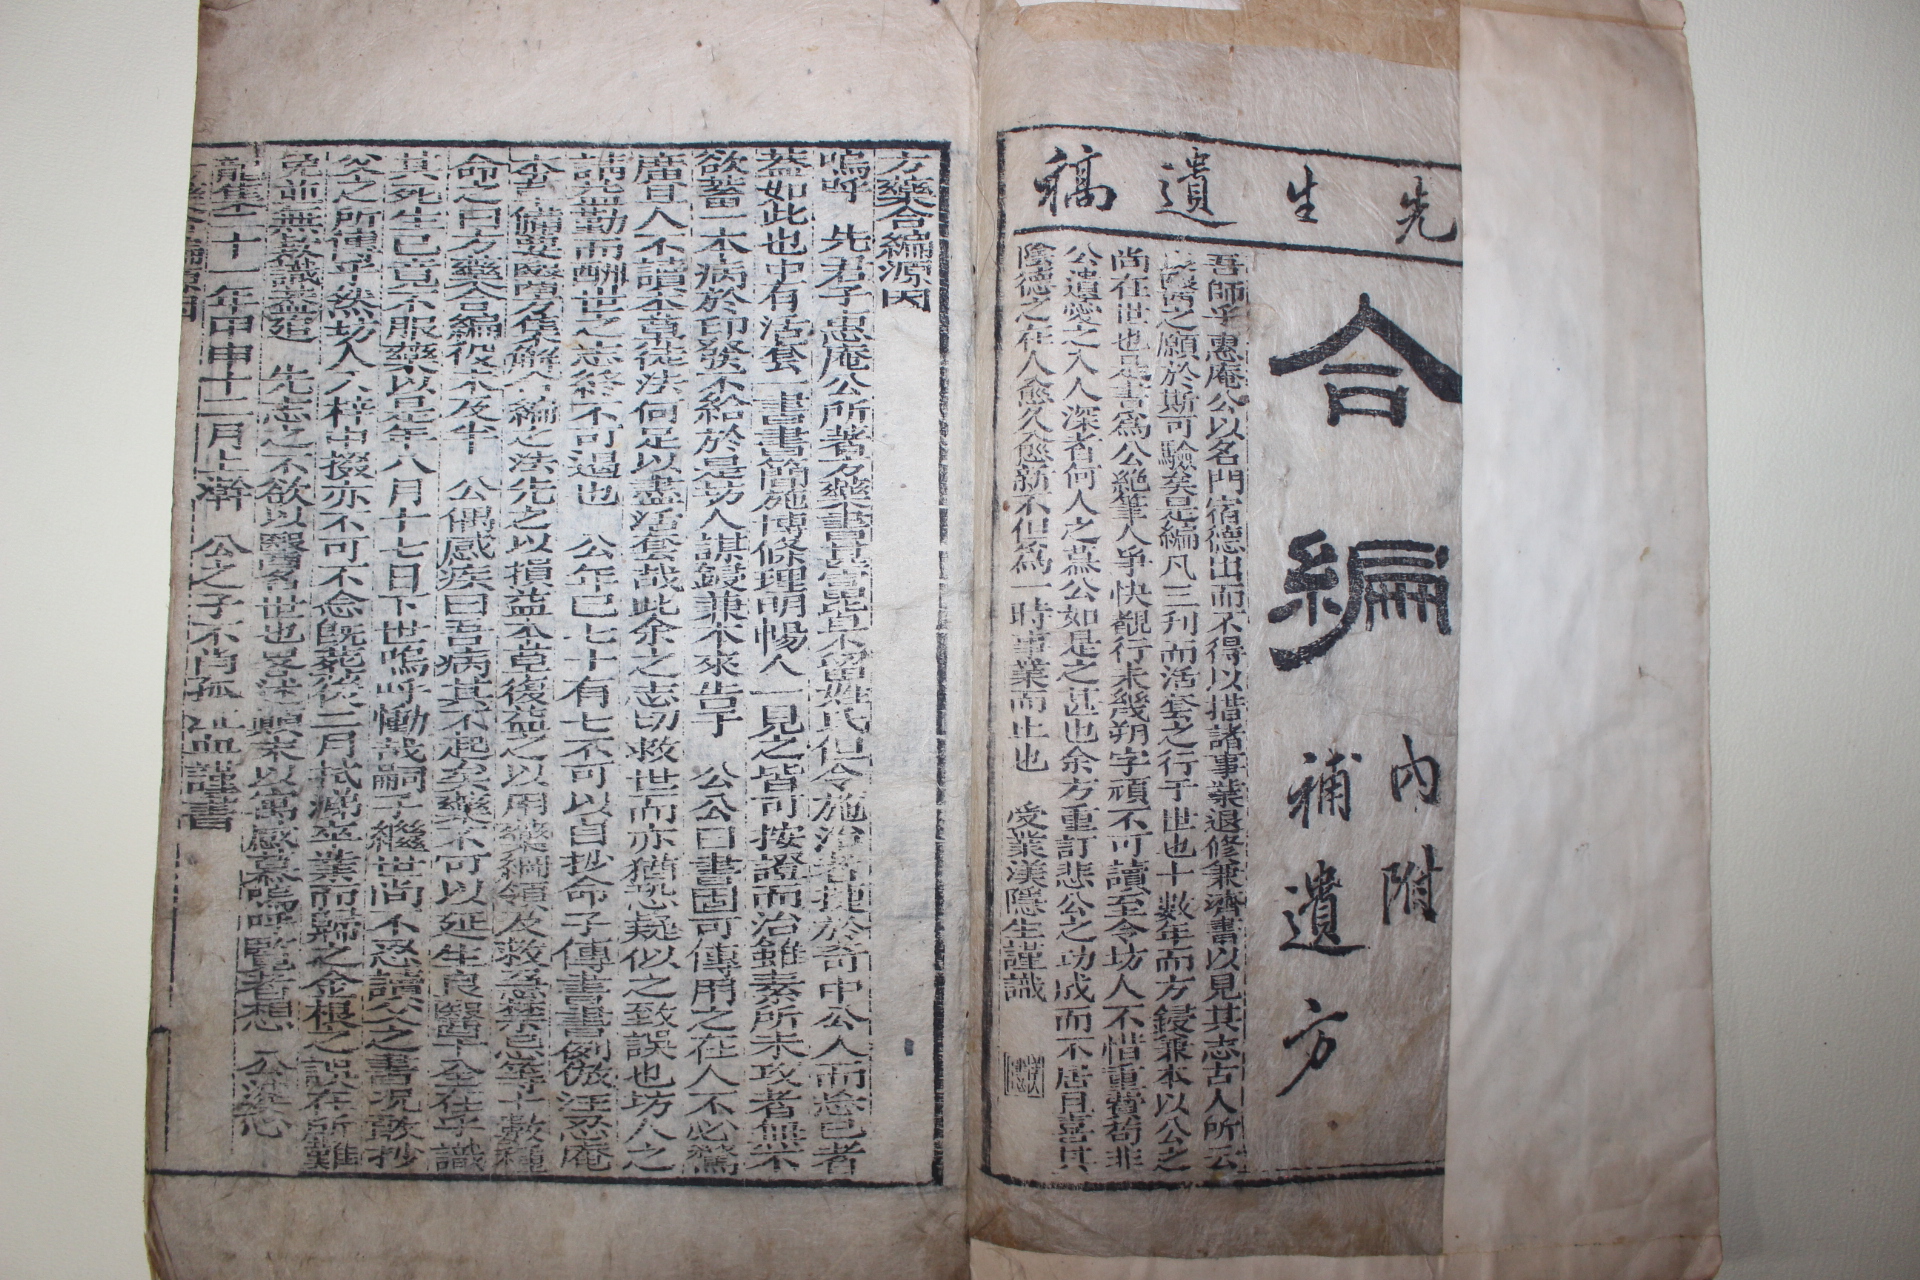 先生遺稿
合編
內附
補遺方
吾師乎惠庵公以名門宿德出而不得以措諸事業退修兼濟書以見其志古人所云
醫之願於斯可驗矣是編凡三刊而活套之行于世也十數年而方鋟兼本以公之
尚在世也是書爲公絶筆人爭快覩行未幾朔字頑不可讀至今坊人不惜重費苟非
公遺愛之入人深者何人之慕公如是之甚也余方重訂悲公之功成而不居且喜其
陰德之在人愈久愈新不但爲一時事業而止也 受業渼隱生謹識
方藥合編源因
嗚呼 先君子惠庵公所著各藥書 皆不留姓氏但令施治者捷於奇中公人而忘己者
蓋如此也中有活套一書書簡施博條理明暢人一見之皆可按證而治雖素所未攻者無不
欲蓄一本病於印發不給於是坊人謀鋟兼本來告于 公公曰書固可傳用之在人不必驚
廣且人不讀本草徒法何足以盡活套哉此余之志切救世而亦猶恐疑似之致誤也坊人之
請益勤而酬世之志終不可遏也 公年已七十有七不可以自抄命子傳書書例倣汪忍庵
本草備要醫方集解合編之法先之以損益本草復益之以用藥綱領及救急禁忌等十數種
命之曰方藥合編役未及半 公偶感疾曰吾病其不起矣藥不可以延生良醫下今在乎識
其死生已竟不服藥以是年八月十七日下世嗚呼慟哉嗣子繼世尚不忍讀父之書況敢抄
父之所傳乎然坊人入梓中掇亦不可不念旣葬後二月拭涕卒業而歸之金根之誤在所難
免並無敍識蓋追 先志之不欲以醫名世也 顚末以寓感慕嗚呼覽者想 公婆心
龍集二十一年甲申十二月上澣 公之子不肖孤泣血謹書